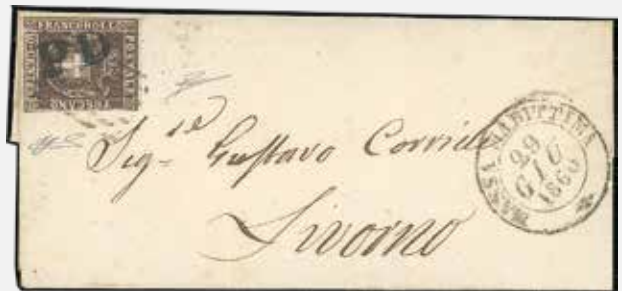 FRANCOBOLLO
POSTALE
TOSCANO
PD
Sig.re Gustavo
Livorno
MASSA MARITTIMA
29
GIU
1860